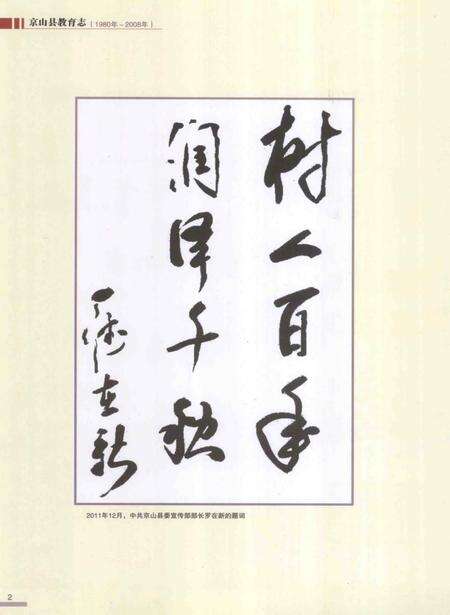 京山县教育志（1980年－2008年）
树人百年
润泽千秋
罗在新
2011年12月，中共京山县委宣传部部长罗在新的题词
2